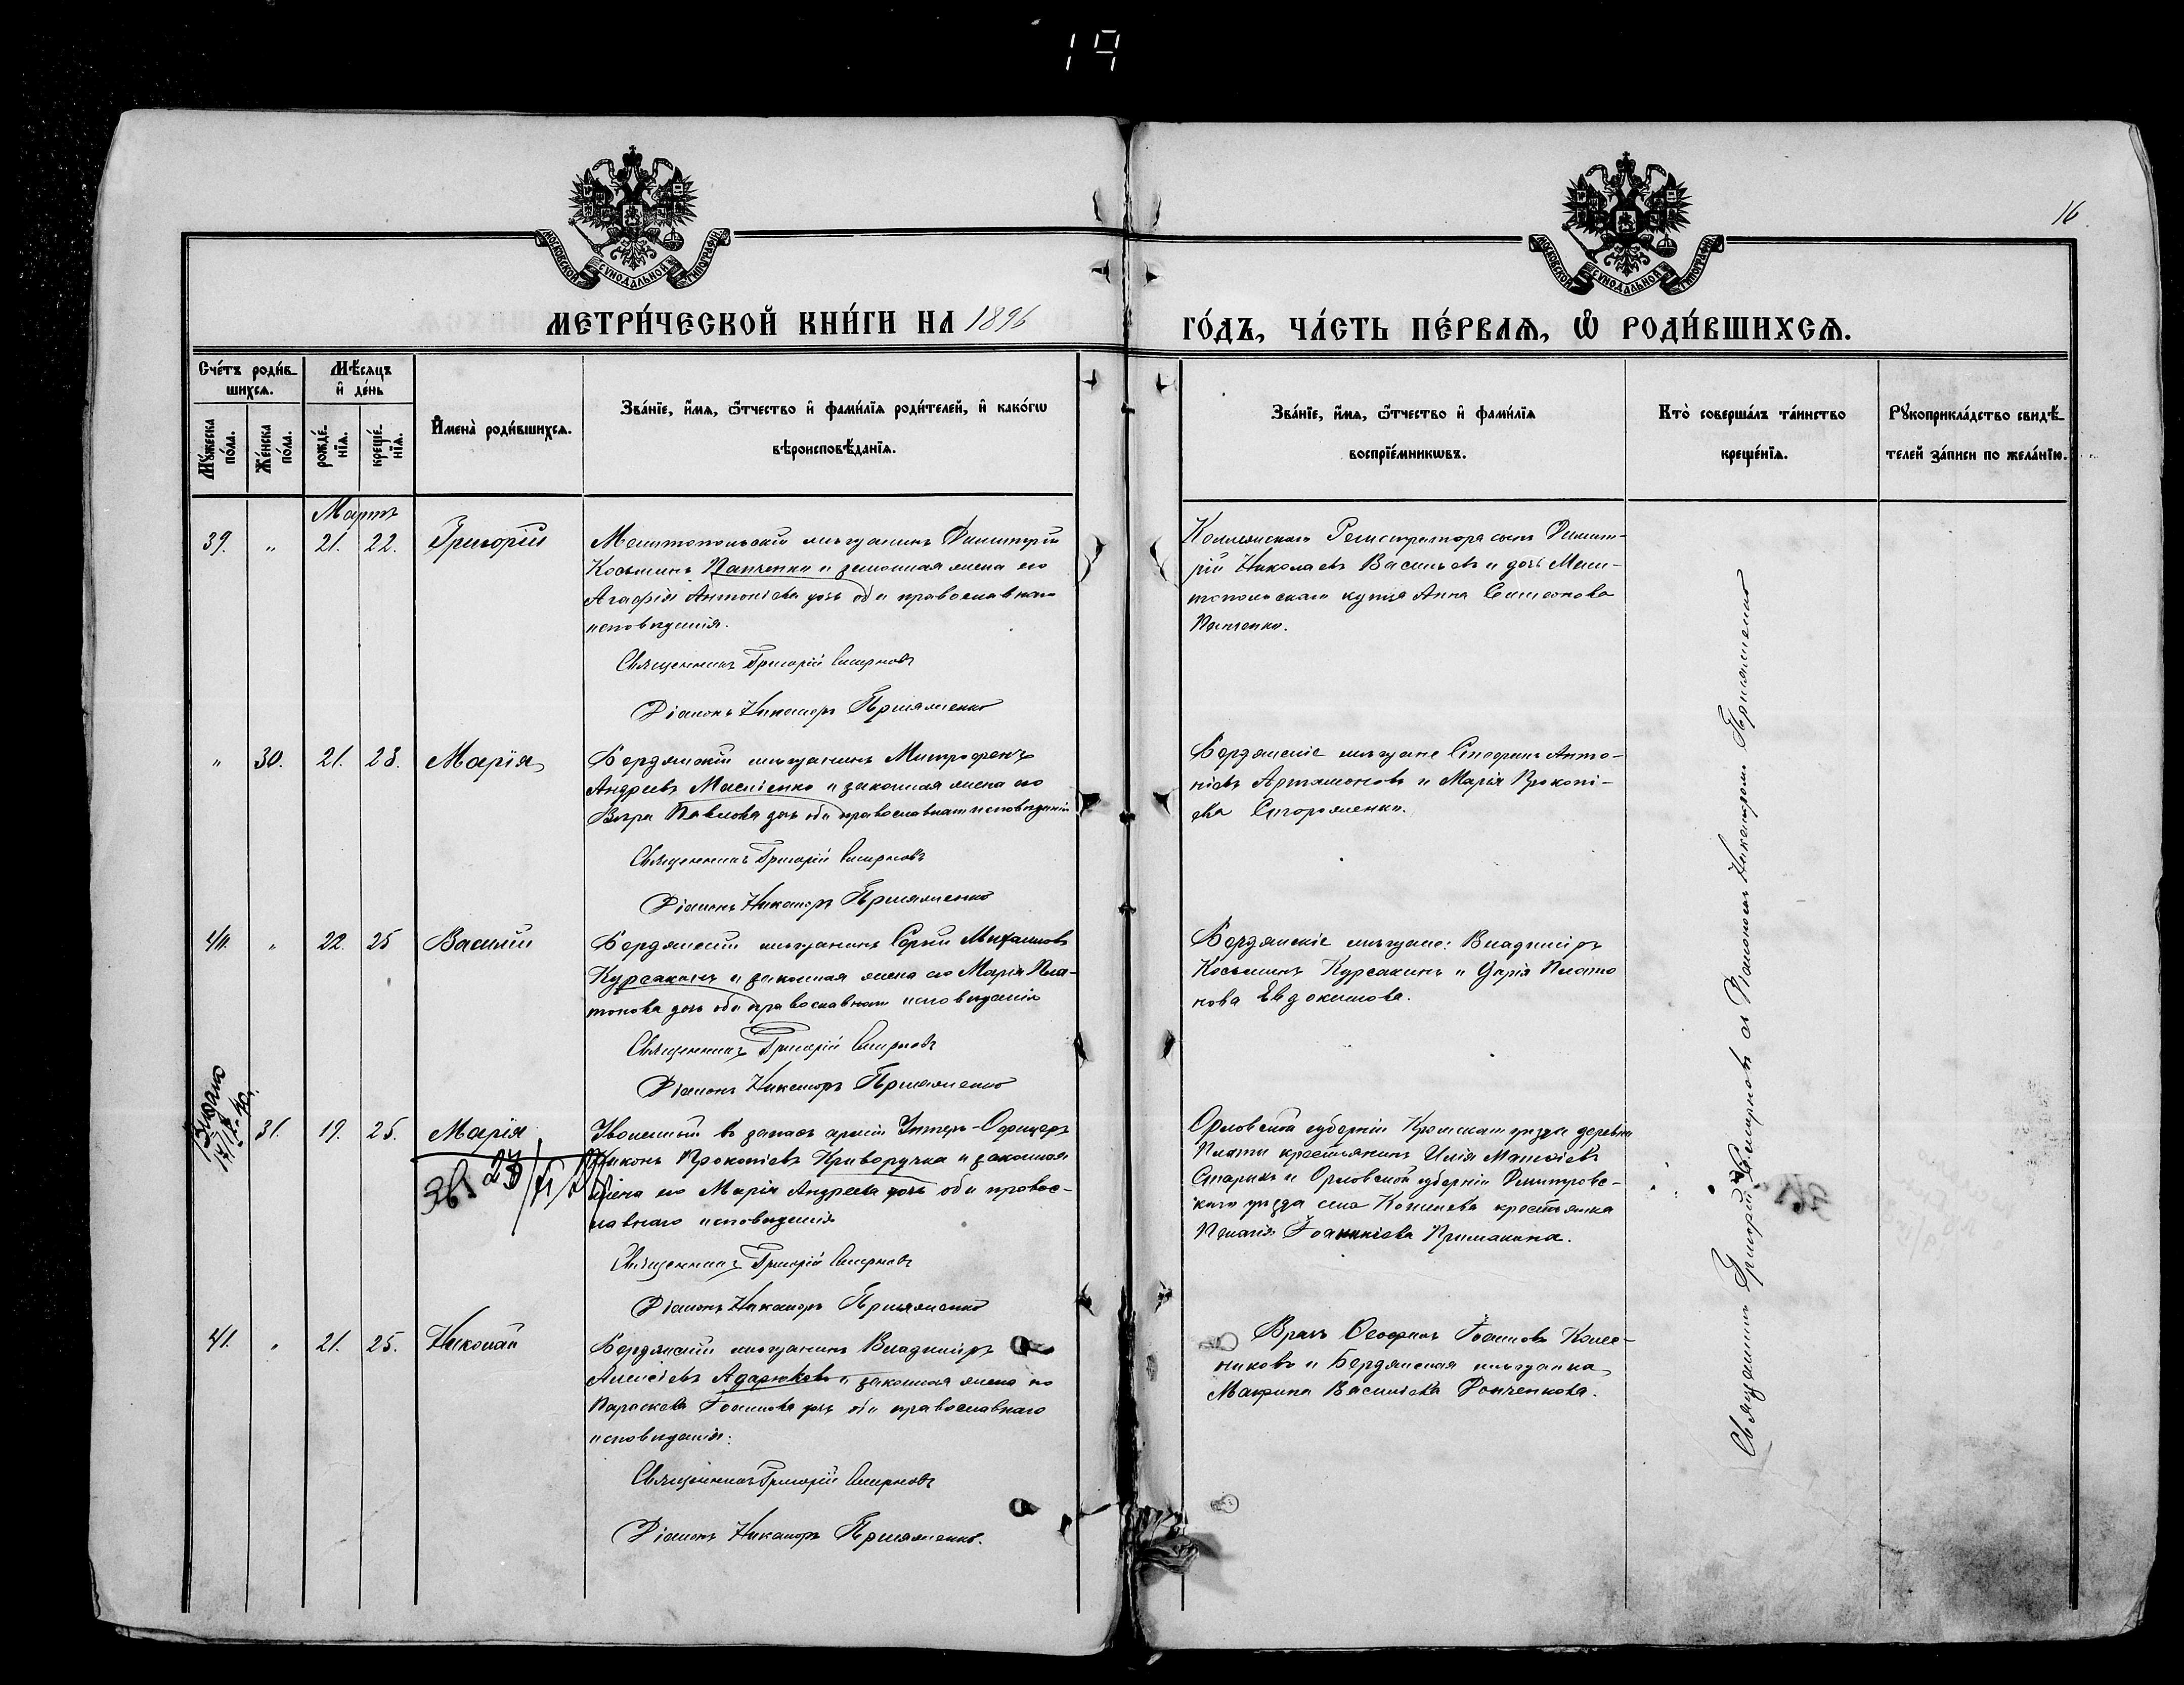 19
16
МОСКОВСКОЙ СѴНОДАЛЬНОЙ ТИПОГРАФІИ
МОСКОВСКОЙ СѴНОДАЛЬНОЙ ТИПОГРАФІИ
МЕТРИ́ЧЕСКОЙ КНИ́ГИ НА 1896
ГО́ДЪ, ЧА́СТЬ ПЕ́РВАѦ, Ѡ҆ РОДИ́ВШИХСѦ.
Сче́тъ роди́в-
шихсѧ.
Мѣ́сѧцъ
и҆ де́нь
Мꙋ́жеска по́ла.
Же́нска по́ла.
рожде́-нїѧ.
креще́-нїѧ.
И҆мена̀ роди́вшихсѧ.
Зва́нїе, и҆́мѧ, ѻ҆́тчество и҆ фами́лїѧ роди́телей, и҆ како́гѡ
вѣроисповѣ́данїѧ.
Зва́нїе, и҆́мѧ, ѻ҆́тчество и҆ фами́лїѧ
воспрїе́мникѡвъ.
Кто̀ соверша́лъ та́инство
креще́нїѧ.
Рꙋкоприкла́дство свидѣ́-
телей за́писи по жела́нїю.
Мартъ
39. " 21. 22. Григорій
Мелитопольскій мѣщанинъ Димитрій
Косьминъ Панченко и законная жена его
Агафія Антоніева дочь оба православнаго
исповѣданія.
Священникъ Григорій Смирновъ
Діаконъ Никаноръ Пришляменко
Коллежскаго Регистратора сынъ Димит-
рій Николаевъ Васильевъ и дочь Мели-
топольскаго купца Анна Симеонова
Панченко.
" 30. 21. 23. Марія
Бердянскій мѣщанинъ Митрофанъ
Андреевъ Маслненко и законная жена его
Вѣра Павлова дочь оба православнаго исповѣданія
Священникъ Григорій Смирновъ
Діаконъ Никаноръ
Бердянскіе мѣщане Стефанъ Анто-
ніевъ Артамоновъ и Марія Прокопі-
ева
40. " 22. 25 Василій
Бердянскій мѣщанинъ Сергій Михаиловъ
Курсакинъ и законная жена его Марія Пла-
тонова дочь оба православнаго исповѣданія
Священникъ Григорій Смирновъ
Діаконъ Никаноръ
Бердянскіе мѣщане: Владиміръ
Косьминъ Курсакинъ и Дарія Плато
нова Евдокимова.
Выдано
31. 19. 25. Марія
Уволенный въ запасъ арміи Унтеръ-Офицеръ
Никонъ Прокопіевъ Криворучка и законная
жена его Марія Андреева дочь оба правос-
лавнаго исповѣданія
Священникъ Григорій Смирновъ
Діаконъ Никаноръ
Орловской губерніи Кромскаго уѣзда деревни
Плоты крестьянинъ Илія Матвѣевъ
Старыхъ и Орловской губерніи Дмитровс-
каго уѣзда села крестьянка
Пелагія Іоанникіева Примакина.
41. " 21. 25. Николай
Бердянскій мѣщанинъ Владиміръ
Алексіевъ Адарюковъ и законная жена его
Параскева Іоаннова дочь оба православнаго
исповѣданія.
Священникъ Григорій Смирновъ
Діаконъ Никаноръ
Врачъ Ѳеофилъ Іоанновъ Колес-
никовъ и Бердянская мѣщанка
Макрина Василіева
Священникъ Григорій Смирновъ съ Діакономъ Никаноромъ